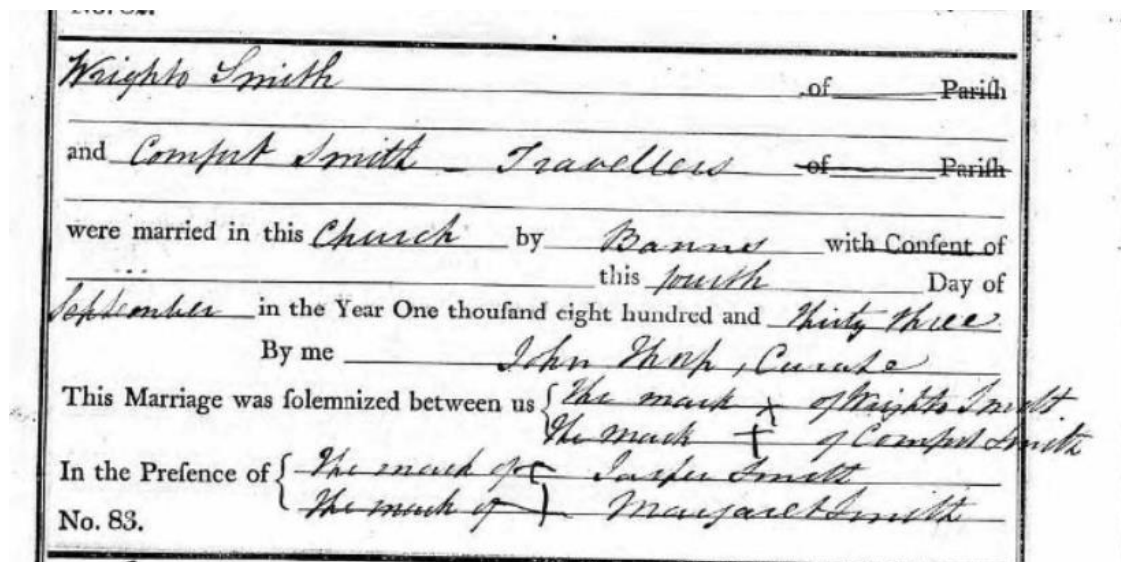 Wrighto Smith of Pariſh
and Comfort Smith - Travellers of Pariſh
were married in this Church by Banns with Conſent of
this fourth Day of
September in the Year One thouſand eight hundred and thirty three
By me John Thorp, Curate
This Marriage was ſolemnized between us { The mark x of Wrighto Smith
The mark + of Comfort Smith
In the Preſence of { The mark of Jasper Smith
The mark of Margaret Smith
No. 83.